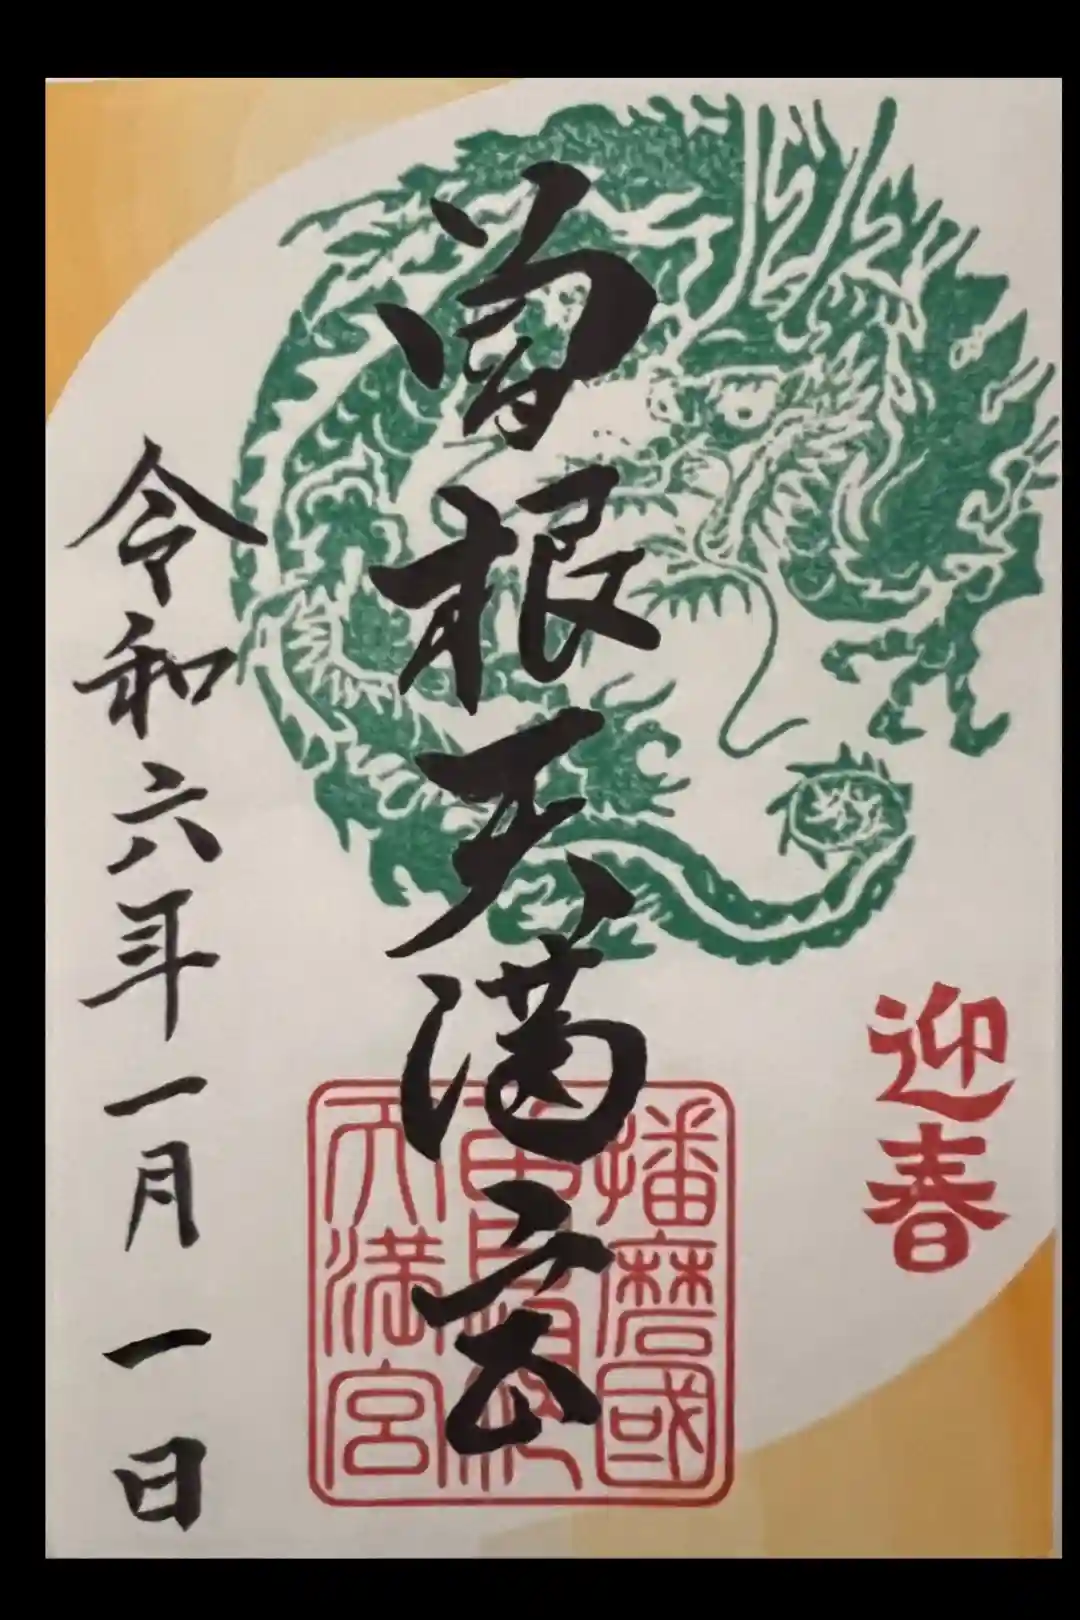 迎春
曽根天満宮
令和六年一月一日
播磨國
曽根
天満宮